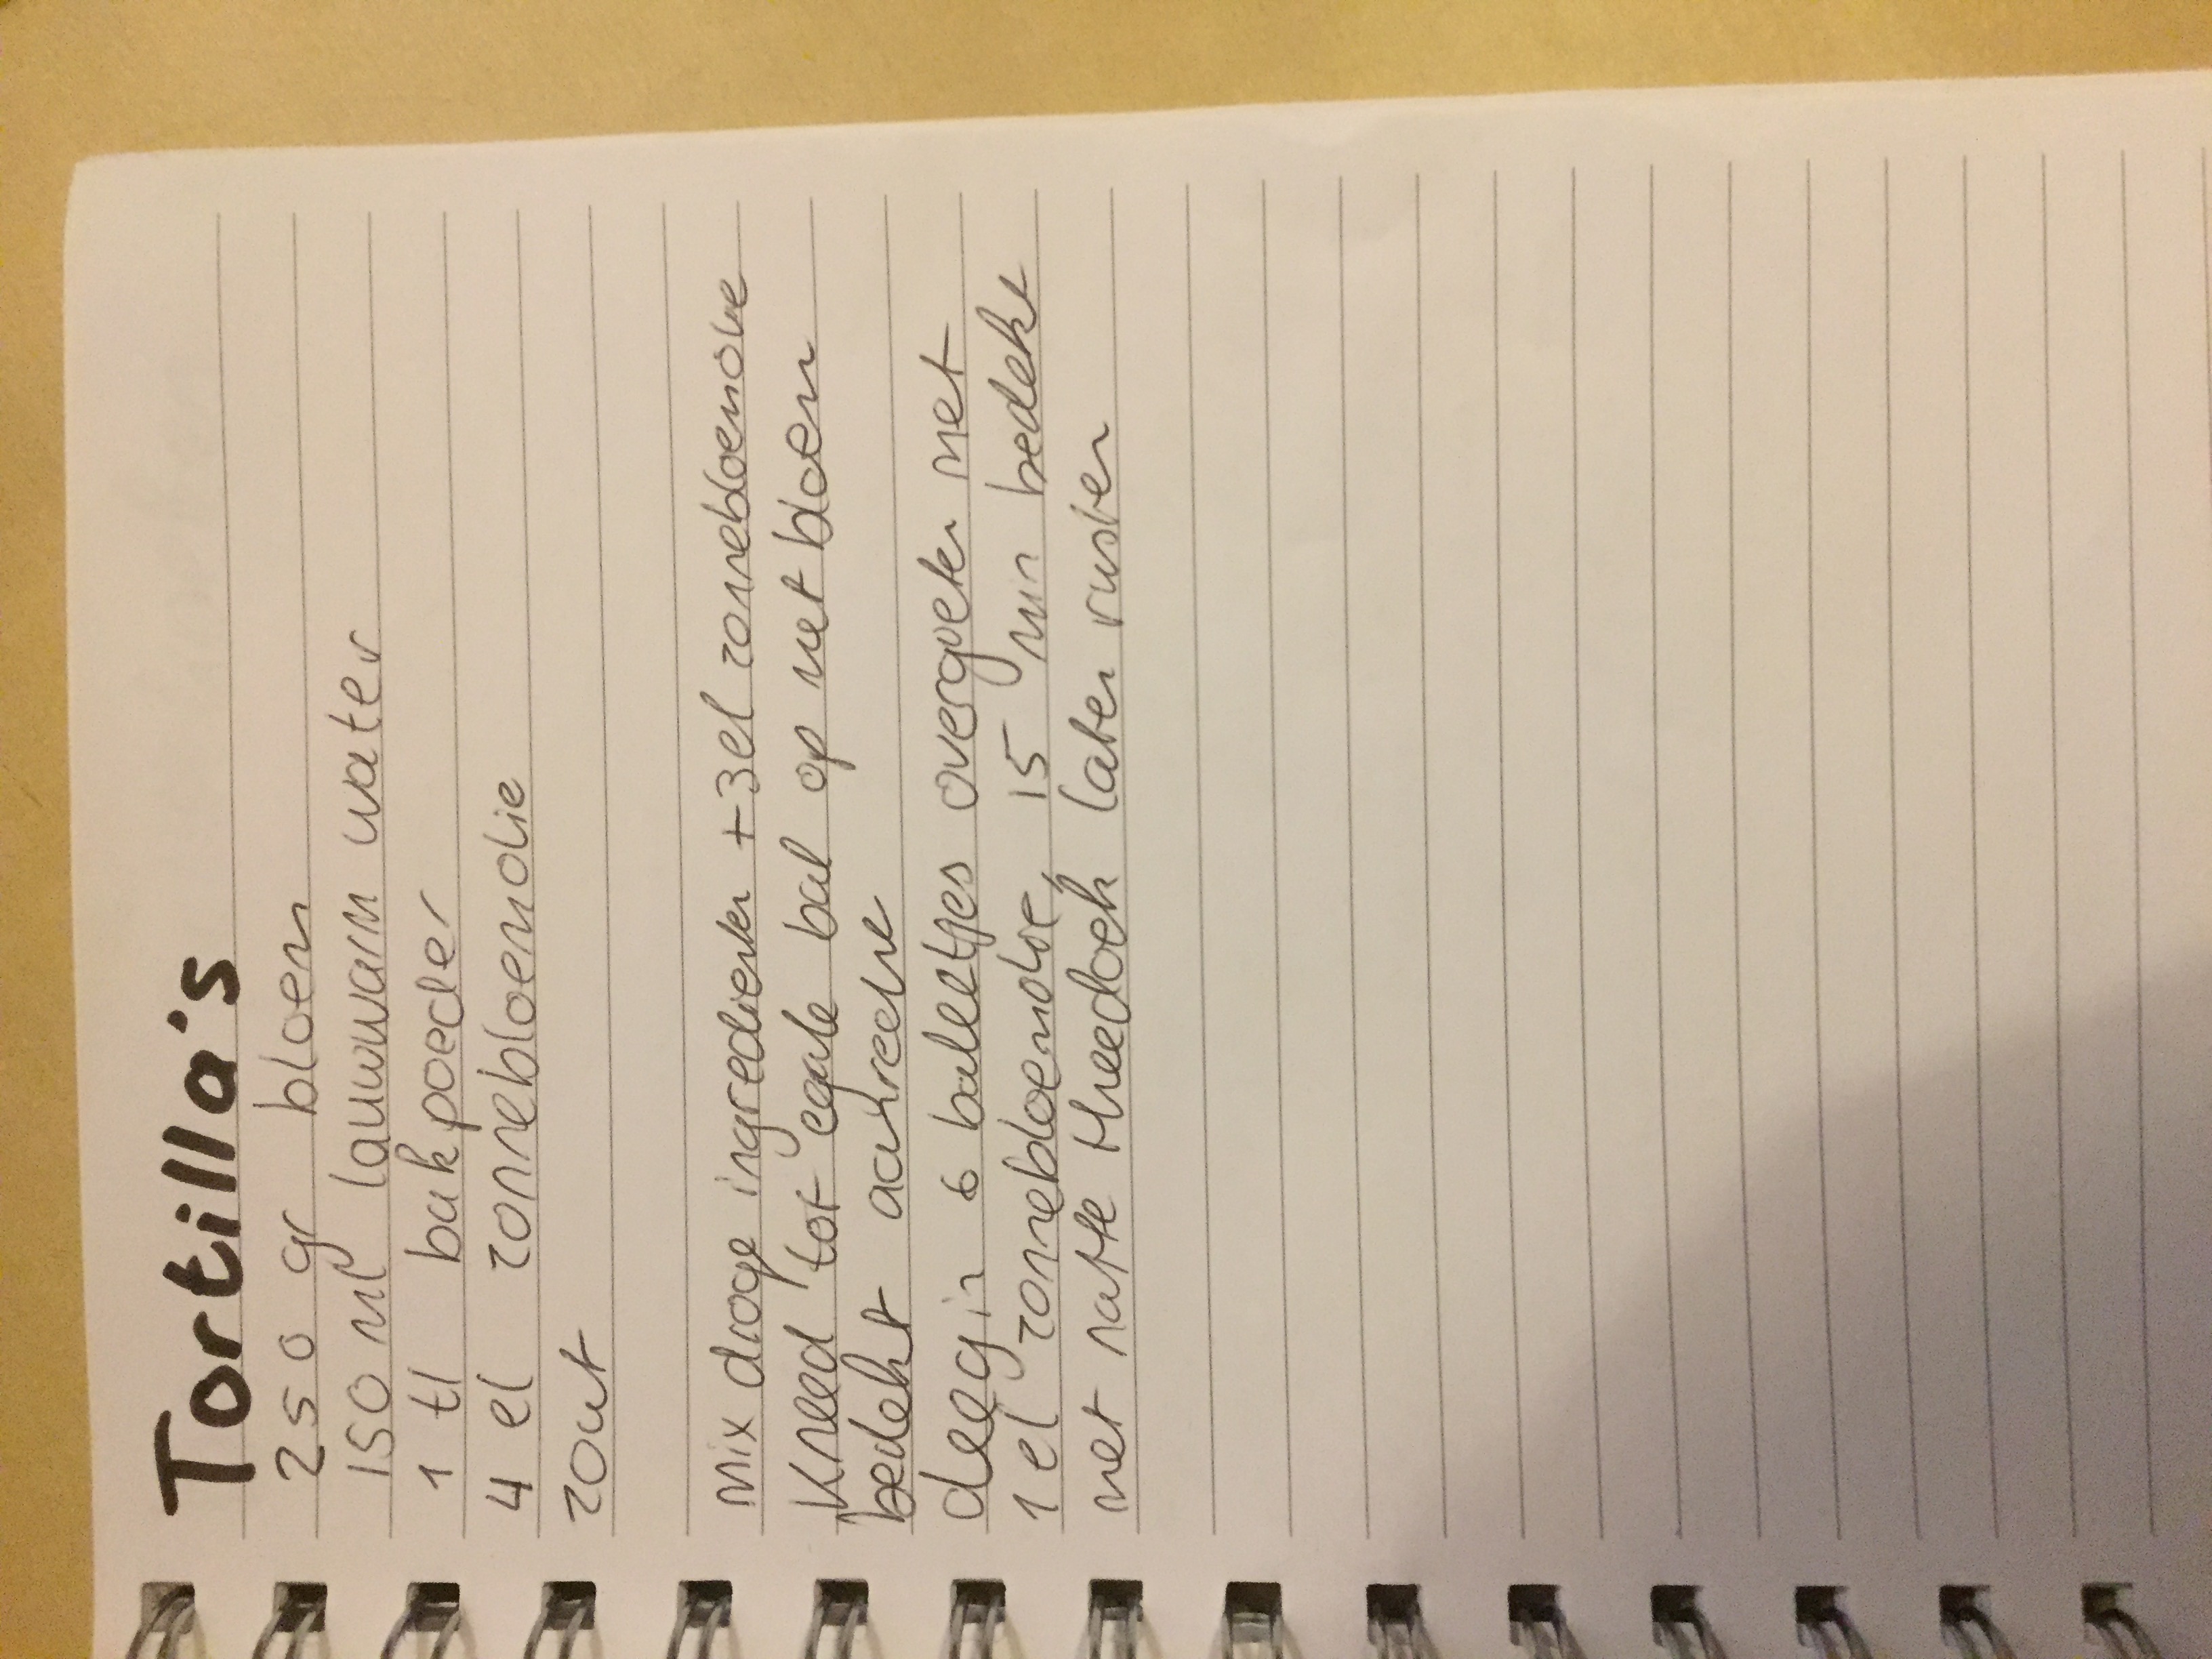 Tortilla's
250 gr bloem
150 ml lauwwarm water
1 tl bakpoeder
4 el zonnebloemolie
zout
Mix droge ingredienten +3el zonnebloemolie
Kneed tot egale bal op met bloem
bedekt aanrecht
deeg in 6 balletjes overgieten met
1 el zonnebloemolie, 15 min bedekt
met natte theedoek laten rusten